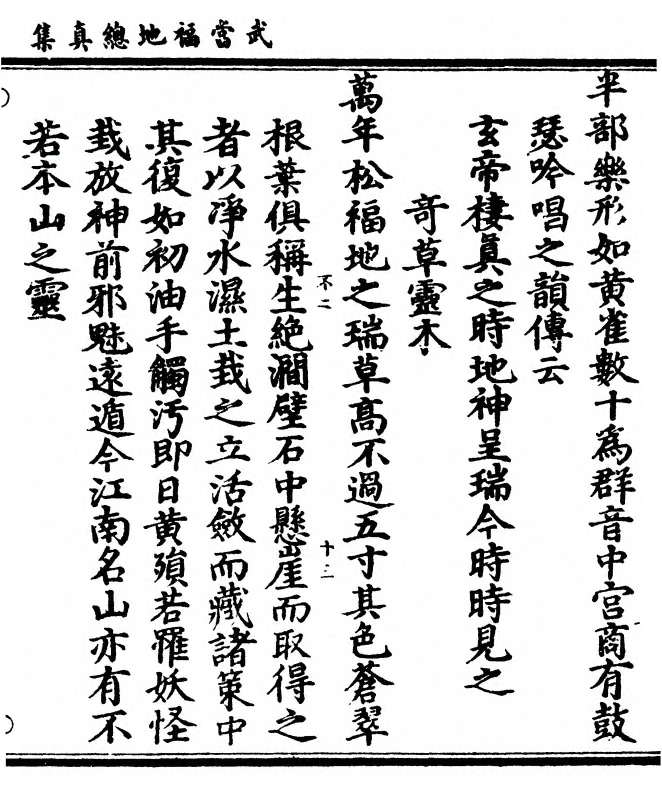 武當福地總真集
半部樂形如黃雀數十為群音中宮商有鼓
瑟吟唱之韻傳云
玄帝棲眞之時地神呈瑞今時時見之
奇草靈木
萬年松福地之瑞草高不過五寸其色蒼翠
不二
十三
根葉俱稱生絶澗壁石中懸崖而取得之
者以淨水濕土栽之立活斂而藏諸策中
其復如初油手觸污即日黄殞若罹妖怪
栽放神前邪魅遠遁今江南名山亦有不
若本山之靈